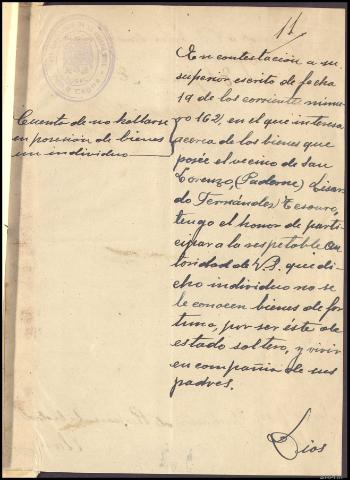 11
En contestación a su
superior escrito de fecha
19 de los corriente núme-
ro 162, en el que interesa
acerca de los bienes que
posée el vecino de San
Lorenzo, (Paderne) Lisar-
do Fernández Tesouro,
tengo el honor de parti-
cipar a la respetable au-
toridad de V.S. que di-
cho individuo no se
le conocen bienes de for-
tuna, por ser éste de
estado soltero, y vivir
en compañia de sus
padres.
Dios
Cuenta de no hallarse
en posesión de bienes
un individuo